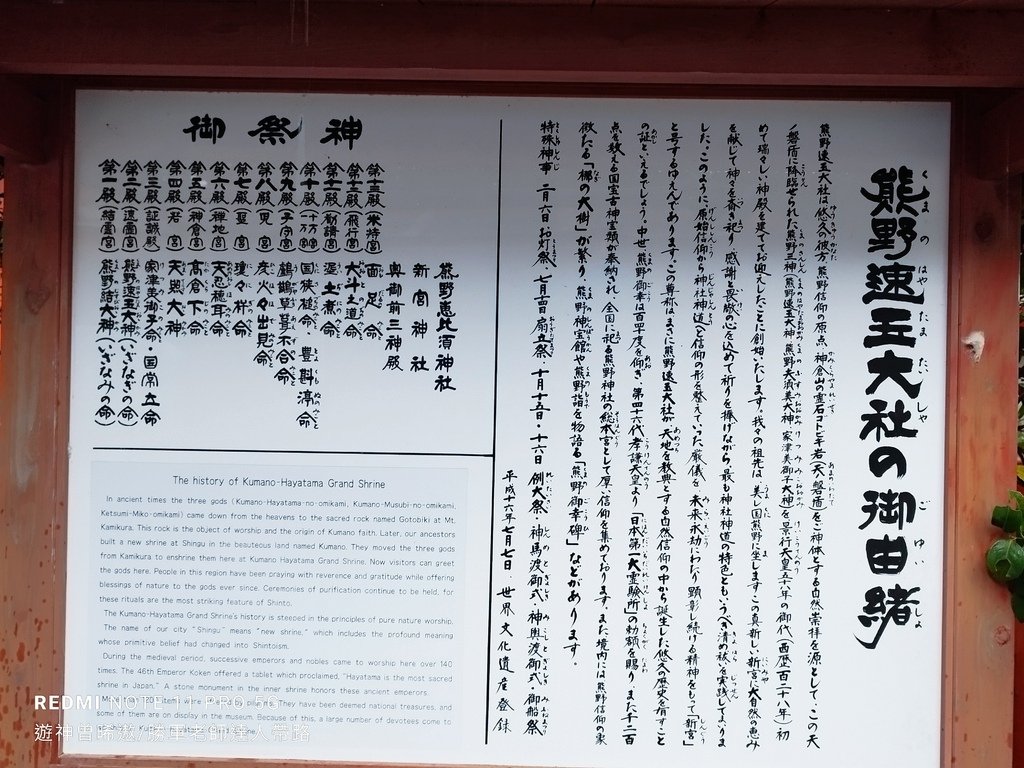 熊野速玉大社の御由緒
熊野速玉大社は悠久の彼方、熊野信仰の原点、神倉山の霊石ゴトビキ岩(天ノ磐盾)をご神体とする自然崇拝を源として、この天
ノ磐盾に降臨せられた熊野三神(熊野速玉大神・熊野夫須美大神・家津美御子大神)を景行天皇五十八年の御代(西暦百二十八年)初
めて瑞々しい神殿を建ててお迎えしたことに創始いたします。我々の祖先は、美し国熊野に坐しますこの真新しい新宮に大自然の恵み
を献じて神々を斎き祀り、感謝と畏敬の心を込めて祈りを捧げながら、最も神社神道の特色ともいうべき清め祓いを実践してまいりま
した。このように、原始信仰から神社神道へと信仰の形を整えていった厳儀を、未来永劫にわたり顕彰し続ける精神をもって「新宮」
と号するゆえんであります。この尊称はまさに熊野速玉大社が、天地を教典とする自然信仰の中から誕生した悠久の歴史を有すこと
の証しといえるでしょう。中世、熊野御幸は百四十度を仰ぎ、第四十六代孝謙天皇より「日本第一大霊験所」の勅額を賜り、また千二百
点を数える国宝古神宝類が奉納され、全国に祀る熊野神社の総本宮として厚い信仰を集めております。また境内には熊野信仰の象
徴たる「梛の大樹」が繁り、熊野神宝館や熊野詣を物語る「熊野御幸碑」などがあります。
特殊神事 二月六日お灯祭・七月十四日扇立祭・十月十五日・十六日 例大祭・神馬渡御式・神輿渡御式・御船祭
平成十六年七月七日 世界文化遺産登録
御祭神
第一殿(結霊宮) 熊野結大神(いざなみの命)
第二殿(速霊宮) 熊野速玉大神(いざなぎの命)
第三殿(証誠殿) 家津美御子命・国常立命
第四殿(若宮) 天照大神
第五殿(神倉宮) 高倉下命
第六殿(禅地宮) 天忍穂耳命
第七殿(聖宮) 瓊々杵命
第八殿(児宮) 彦火々出見命
第九殿(子守宮) 鵜鶿草葺不合命
第十殿(一万宮 十万宮) 国狭槌命 豊斟渟命
第十一殿(勧請宮) 泥土煮命
第十二殿(飛行宮) 大斗之道命
第十三殿(米持宮) 面足命
奥御前三神殿
新宮神社
熊野恵比須神社
The history of Kumano-Hayatama Grand Shrine
In ancient times the three gods (Kumano-Hayatama-no-omikami, Kumano-Musubi-no-omikami,
Ketsumi-Miko-omikami) came down from the heavens to the sacred rock named Gotobiki at Mt.
Kamikura. This rock is the object of worship and the origin of Kumano faith. Later, our ancestors
built a new shrine at Shingu in the beauteous land named Kumano. They moved the three gods
from Kamikura to enshrine them here at Kumano Hayatama Grand Shrine. Now visitors can greet
the gods here. People in this region have been praying with reverence and gratitude while offering
blessings of nature to the gods ever since. Ceremonies of purification continue to be held, for
these rituals are the most striking feature of Shinto.
The Kumano-Hayatama Grand Shrine's history is steeped in the principles of pure nature worship.
The name of our city "Shingu" means "new shrine," which includes the profound meaning
whose primitive belief had changed into Shintoism.
During the medieval period, successive emperors and nobles came to worship here over 140
times. The 46th Emperor Koken offered a tablet which proclaimed, "Hayatama is the most sacred
shrine in Japan." A stone monument in the inner shrine honors these ancient emperors.
They have been deemed national treasures, and
some of them are on display in the museum. Because of this, a large number of devotees come to
REDMI NOTE 11 PRO 5G